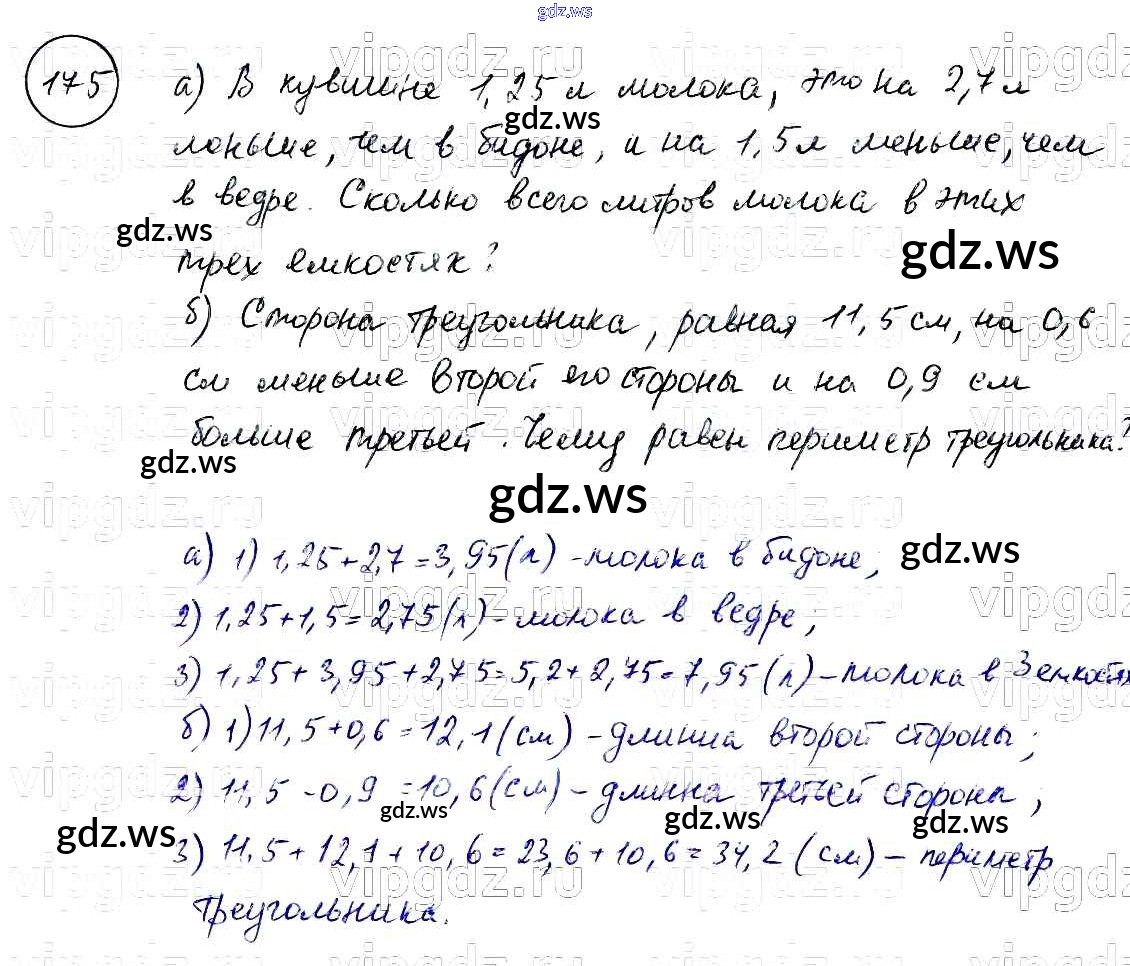 gdz.ws
175
а) В кувшине 1,25 л молока, это на 2,7 л
меньше, чем в бидоне, и на 1,5 л меньше, чем
в ведре. Сколько всего литров молока в этих
трех емкостях?
б) Сторона треугольника, равная 11,5 см, на 0,6
см меньше второй его стороны и на 0,9 см
больше третьей. Чему равен периметр треугольника?
а) 1) 1,25+2,7=3,95(л) -молока в бидоне;
2) 1,25+1,5=2,75(л)-молока в ведре;
3) 1,25+3,95+2,75=5,2+2,75=7,95(л)-молока в 3 емкостях
б) 1) 11,5+0,6=12,1(см)-длинна второй стороны;
2) 11,5-0,9=10,6(см)-длинна третьей стороны;
3) 11,5+12,1+10,6=23,6+10,6=34,2(см)-периметр
треугольника.